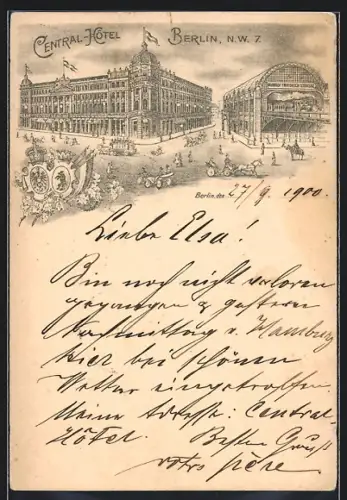 CENTRAL-HÔTEL BERLIN, N.W. 7.
Berlin, den 27/9. 1900.
Liebe Elsa!
Bin noch nicht verloren
gegangen & gestern
Nachmittag v. Hamburg
hier bei schönem
Wetter eingetroffen.
Meine Adresse: Central-
Hôtel. Besten Gruß
votre père